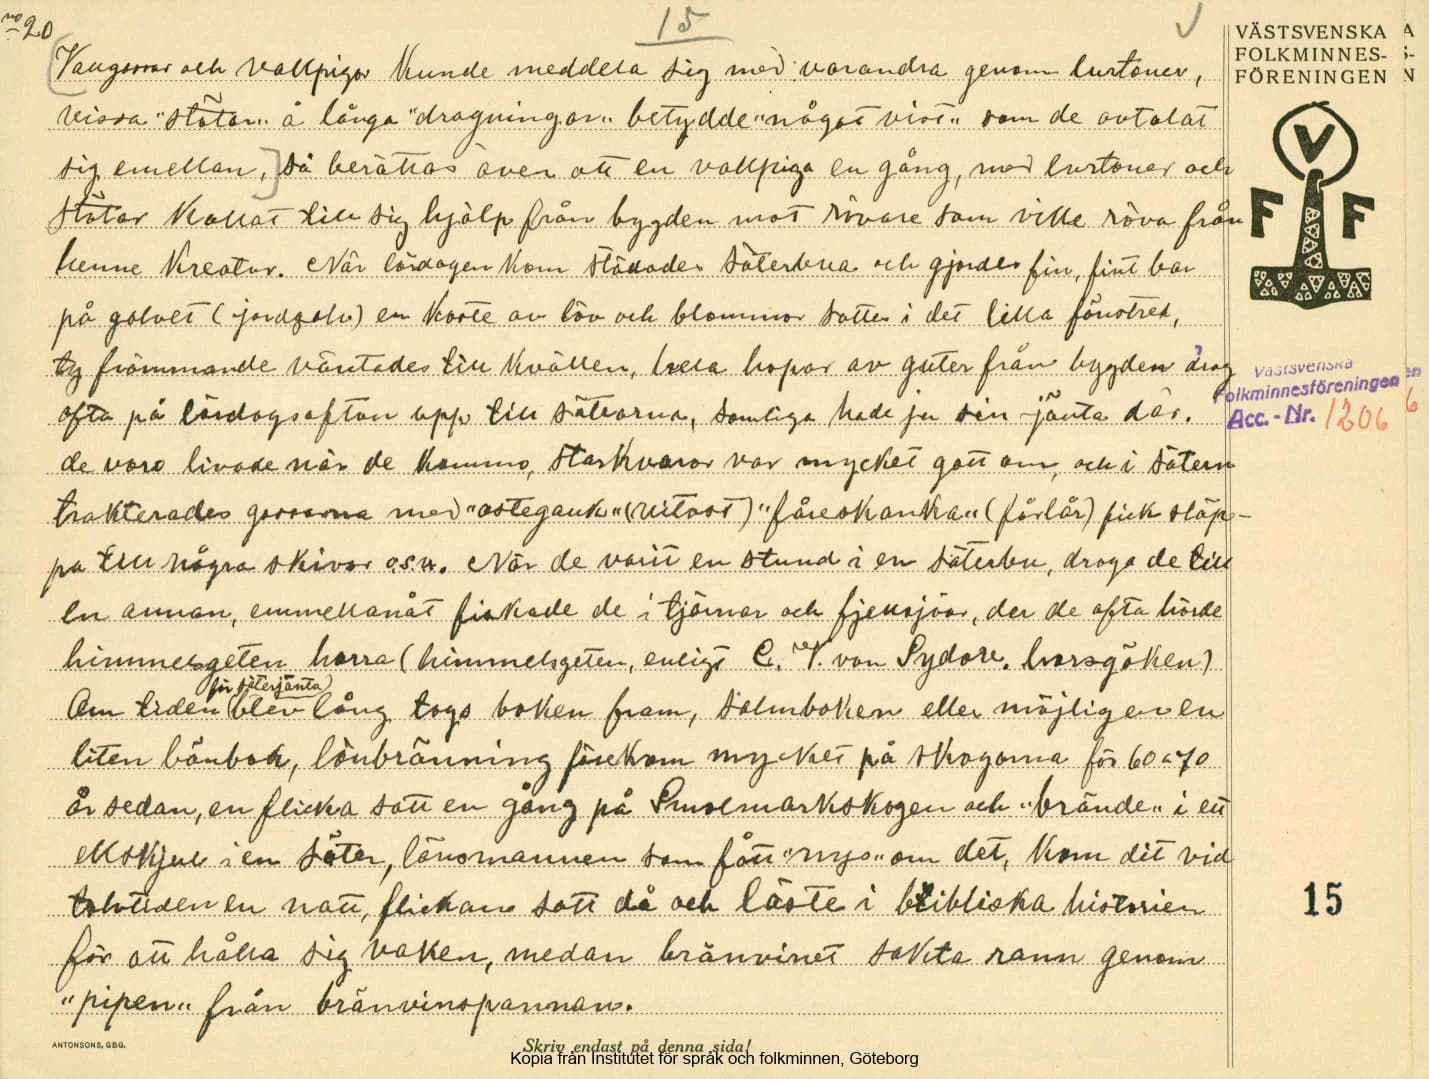 no 20
15
VÄSTSVENSKA
FOLKMINNES-
FÖRENINGEN
och vallpigor kunde meddela sig med varandra genom lurtoner,
vissa "stötar" å långa "dragningar" betydde "något visst" som de avtalat
sig emellan, så berättas även att en vallpiga en gång, med lurtoner och
stötar kallat till sig hjälp från bygden mot rövare som ville röva från
henne kreatur. När lördagen kom städades säterbua och gjordes fin, fint bar
på golvet (jordgolv) en kvste av löv och blommor sattes i det lilla fönstret,
ty främmande väntades till kvällen, hela hopar av guter från bygden drog
ofta på lördagsafton upp till sätrarna, somliga hade ju sin jänta där.
de voro livade när de kommo, starkvaror var mycket gott om, och i sätern
trakterades gossarna med "ostegauk" (vitost) "fåreskanka" (fårlår) fick släp-
pa till några skivor o.s.v. När de varit en stund i en säterbu, droga de till
en annan, emmellanåt fiskade de i tjärnar och fjellsjöar, der de ofta hörde
himmelsgeten horra (himmelsgeten, enligt C. W. von Sydow. horsgöken)
för säterjänta
Om tiden blev lång togs boken fram, salmboken eller möjligen en
liten bönbok, lönbränning förekom mycket på skogarna för 60 a 70
år sedan, en flicka satt en gång på Smolmarkskogen och "brände" i ett
ellskjul i en säter, länsmannen som fått "nys" om det, kom dit vid
tolvtiden en natt, flickan satt då och läste i bibliska historien
för att hålla sig vaken, medan bränvinet sakta rann genom
"pipen" från bränvinspannan.
Västsvenska
Folkminnesföreningen
Acc.-Nr. 1206
V
F F
15
ANTONSONS, GBG.
Skriv endast på denna sida!
Kopia från Institutet för språk och folkminnen, Göteborg